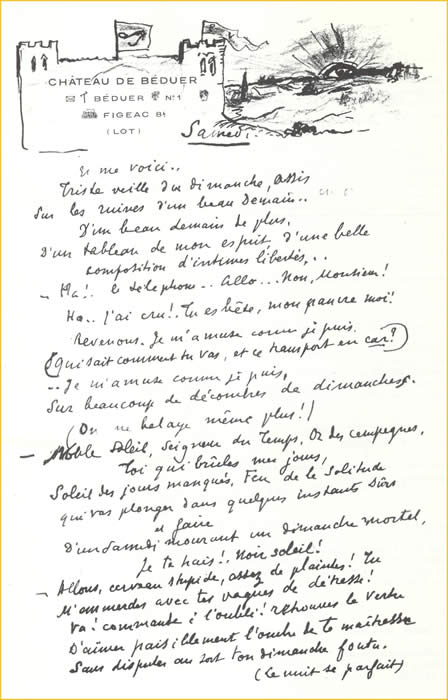 CHÂTEAU DE BÉDUER
BÉDUER N°1
FIGEAC 81
(LOT)
Samedi.
Et me voici..
Triste veille du dimanche, assis
Sur les ruines d'un beau Demain..
D'un beau demain de plus,
D'un tableau de mon esprit, d'une belle
composition d'intimes libertés...
- Ha!. le téléphone.. Allo... Non, Monsieur!
Ha.. j'ai cru!. Tu es bête, mon pauvre moi!
Revenons. Je m'amuse comme je puis.
(Qui sait comment tu vas, et ce transport en car?)
.. Je m'amuse comme je puis,
Sur beaucoup de décombres de dimanches.
(On ne balaye même plus!)
- Noble Soleil, Seigneur du Temps, Or des campagnes,
Toi qui brûles mes jours,
Soleil des jours manqués, Feu de la Solitude
qui vas plonger dans quelques instants Dûrs
et faire
D'un Samedi mourant un dimanche mortel,
Je te hais!. Noir soleil!
- Allons, cerveau stupide, assez de plaintes! Tu
M'emmerdes avec tes vagues de détresse!
Va! commande à l'oubli! retrouve la vertu
D'aimer paisiblement l'ombre de ta maîtresse
Sans disputer au sort ton dimanche foutu.
(la nuit se parfait)